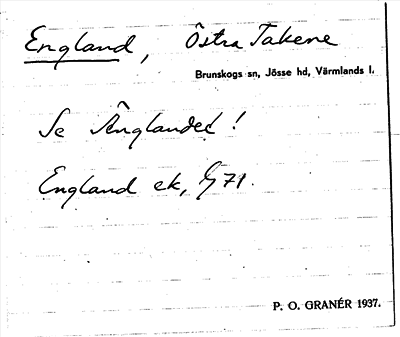 England, Östra Takene
Brunskogs sn, Jösse hd, Värmlands l.
Se Änglandet!
England ek, 71.
P. O. GRANÉR 1937.